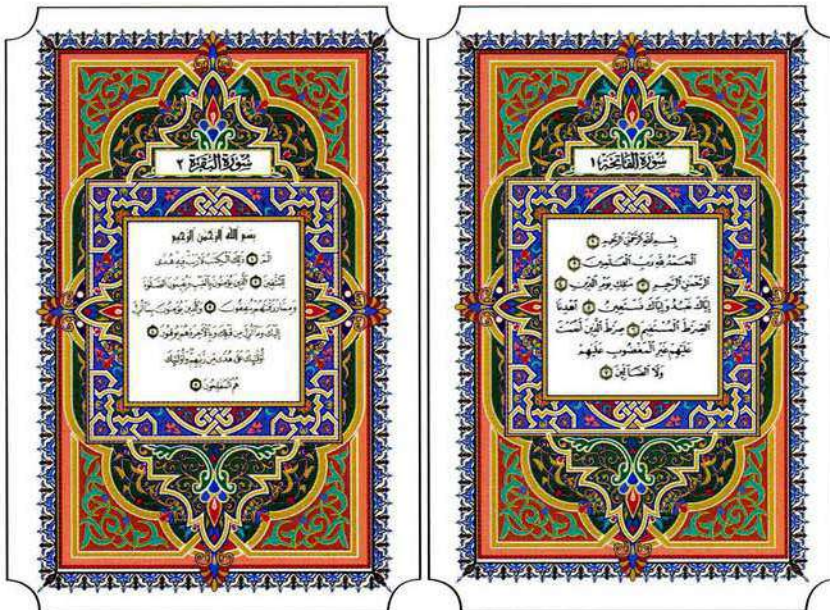 سُورَةُ الفَاتِحَةِ ١
بِسْمِ اللَّهِ الرَّحْمَٰنِ الرَّحِيمِ ١
الْحَمْدُ لِلَّهِ رَبِّ الْعَالَمِينَ ٢
الرَّحْمَٰنِ الرَّحِيمِ ٣ مَالِكِ يَوْمِ الدِّينِ ٤
إِيَّاكَ نَعْبُدُ وَإِيَّاكَ نَسْتَعِينُ ٥ اهْدِنَا
الصِّرَاطَ الْمُسْتَقِيمَ ٦ صِرَاطَ الَّذِينَ أَنْعَمْتَ
عَلَيْهِمْ غَيْرِ الْمَغْضُوبِ عَلَيْهِمْ
وَلَا الضَّالِّينَ ٧
سُورَةُ البَقَرَةِ ٢
بسم الله الرحمن الرحيم
الم ١ ذَٰلِكَ الْكِتَابُ لَا رَيْبَ فِيهِ هُدًى
لِّلْمُتَّقِينَ ٢ الَّذِينَ يُؤْمِنُونَ بِالْغَيْبِ وَيُقِيمُونَ الصَّلَاةَ
وَمِمَّا رَزَقْنَاهُمْ يُنفِقُونَ ٣ وَالَّذِينَ يُؤْمِنُونَ بِمَا أُنزِلَ
إِلَيْكَ وَمَا أُنزِلَ مِن قَبْلِكَ وَبِالْآخِرَةِ هُمْ يُوقِنُونَ ٤
أُولَٰئِكَ عَلَىٰ هُدًى مِّن رَّبِّهِمْ وَأُولَٰئِكَ
هُمُ الْمُفْلِحُونَ ٥